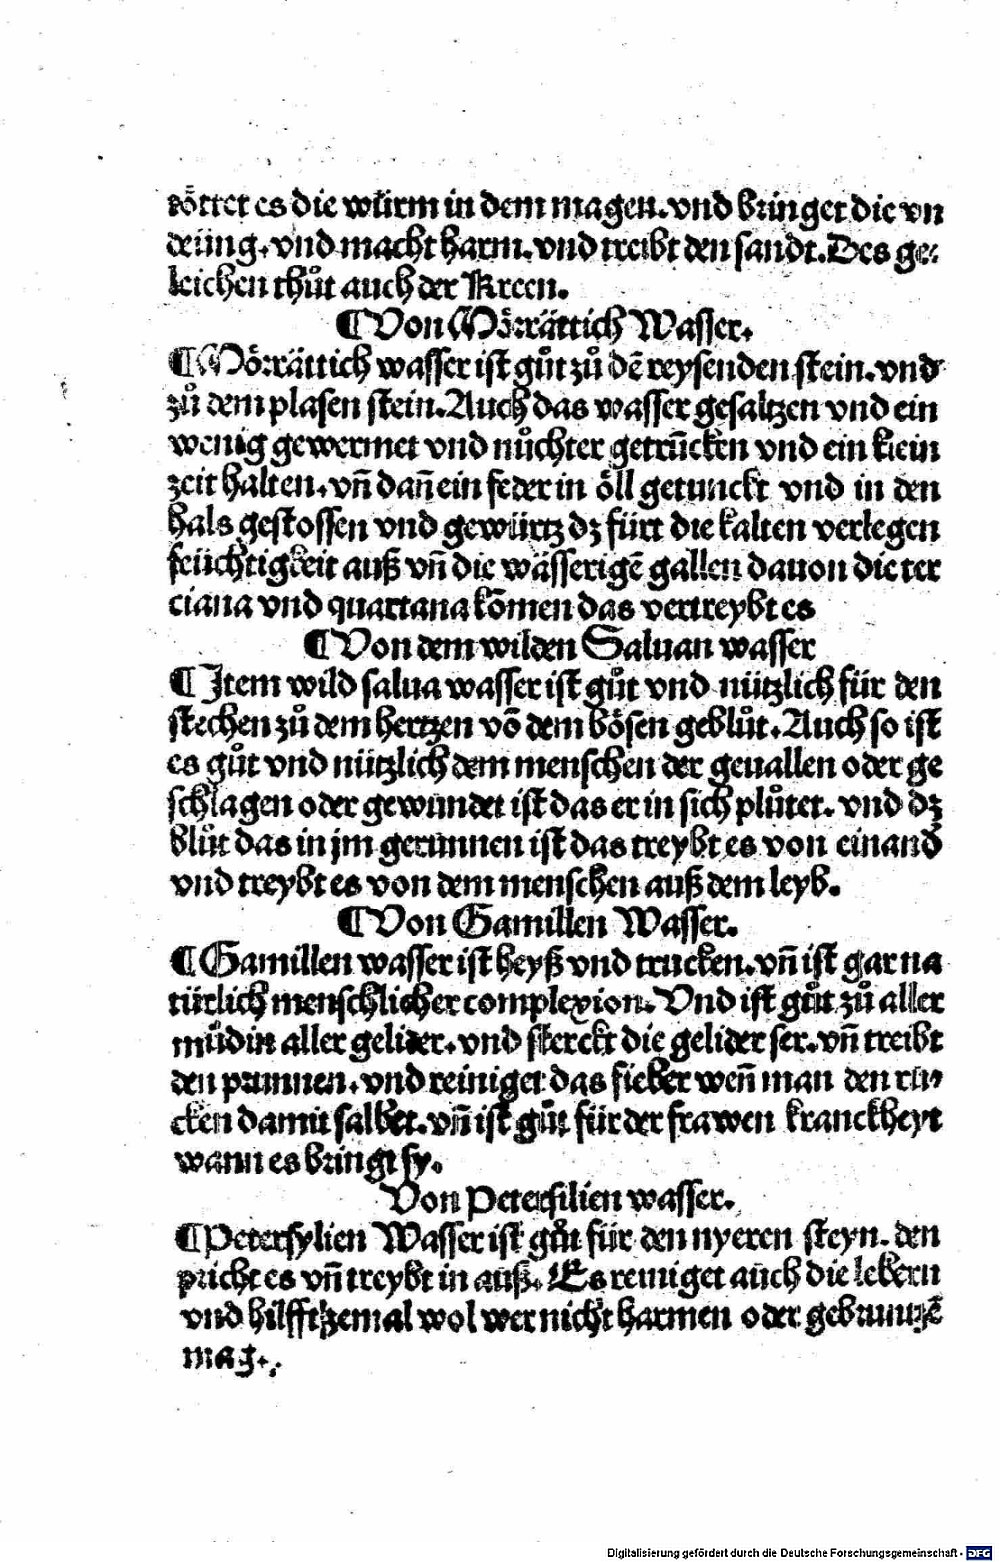 töttet es die würm in dem magen. vnd bringet die vn
deüng. vnd macht harm. vnd treibt den sandt. Des ge⸗
leichen thůt auch der Kreen.
¶ Von Mörrättich Wasser.
¶ Mörrättich wasser ist gůt zů dē reysenden stein. vnd
zů dem plasen stein. Auch das wasser gesaltzen vnd ein
wenig gewermet vnd nůchter getrūcken vnd ein klein
zeit halten. vñ dañ ein feder in öll getunckt vnd in den
hals gestossen vnd gewürtz dz fürt die kalten verlegen
feüchtigkeit auß vñ die wässerigē gallen dauon die ter
ciana vnd quartana kōmen das vertreybt es
¶ Von dem wilden Saluan wasser
¶ Item wild salua wasser ist gůt vnd nützlich für den
stechen zů dem hertzen vō dem bösen geblůt. Auch so ist
es gůt vnd nützlich dem menschen der geuallen oder ge
schlagen oder gewundet ist das er in sich plůtet. vnd dz
blůt das in jm gerunnen ist das treybt es von einand
vnd treybt es von dem menschen auß dem leyb.
¶ Von Gamillen Wasser.
¶ Gamillen wasser ist heyß vnd trucken. vñ ist gar na
türlich menschlicher complexion. Vnd ist gůt zů aller
můdin aller gelider. vnd sterckt die gelider ser. vñ treibt
den prunnen. vnd reiniget das fieber weñ man den ru⸗
cken damit salbet. vñ ist gůt für der frawen kranckheyt
wann es bringt sy.
Von Petersilien wasser.
¶ Petersylien Wasser ist gůt für den nyeren steyn. den
pricht es vñ treybt in auß. Es reiniget auch die lebern
vnd hilfft zemal wol wer nicht harmen oder gebrunzē
mag.
Digitalisierung gefördert durch die Deutsche Forschungsgemeinschaft - DFG